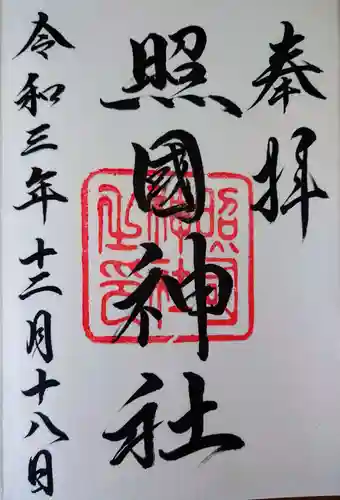 奉拝
照國神社
照国神社之印
令和三年十二月十八日